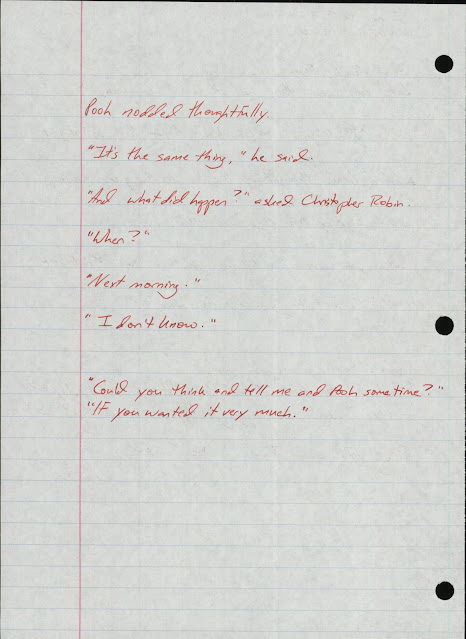 Pooh nodded thoughtfully.
"It's the same thing," he said.
"And what did happen?" asked Christopher Robin.
"When?"
"Next morning."
"I don't know."
"Could you think and tell me and Pooh sometime?"
"If you wanted it very much."